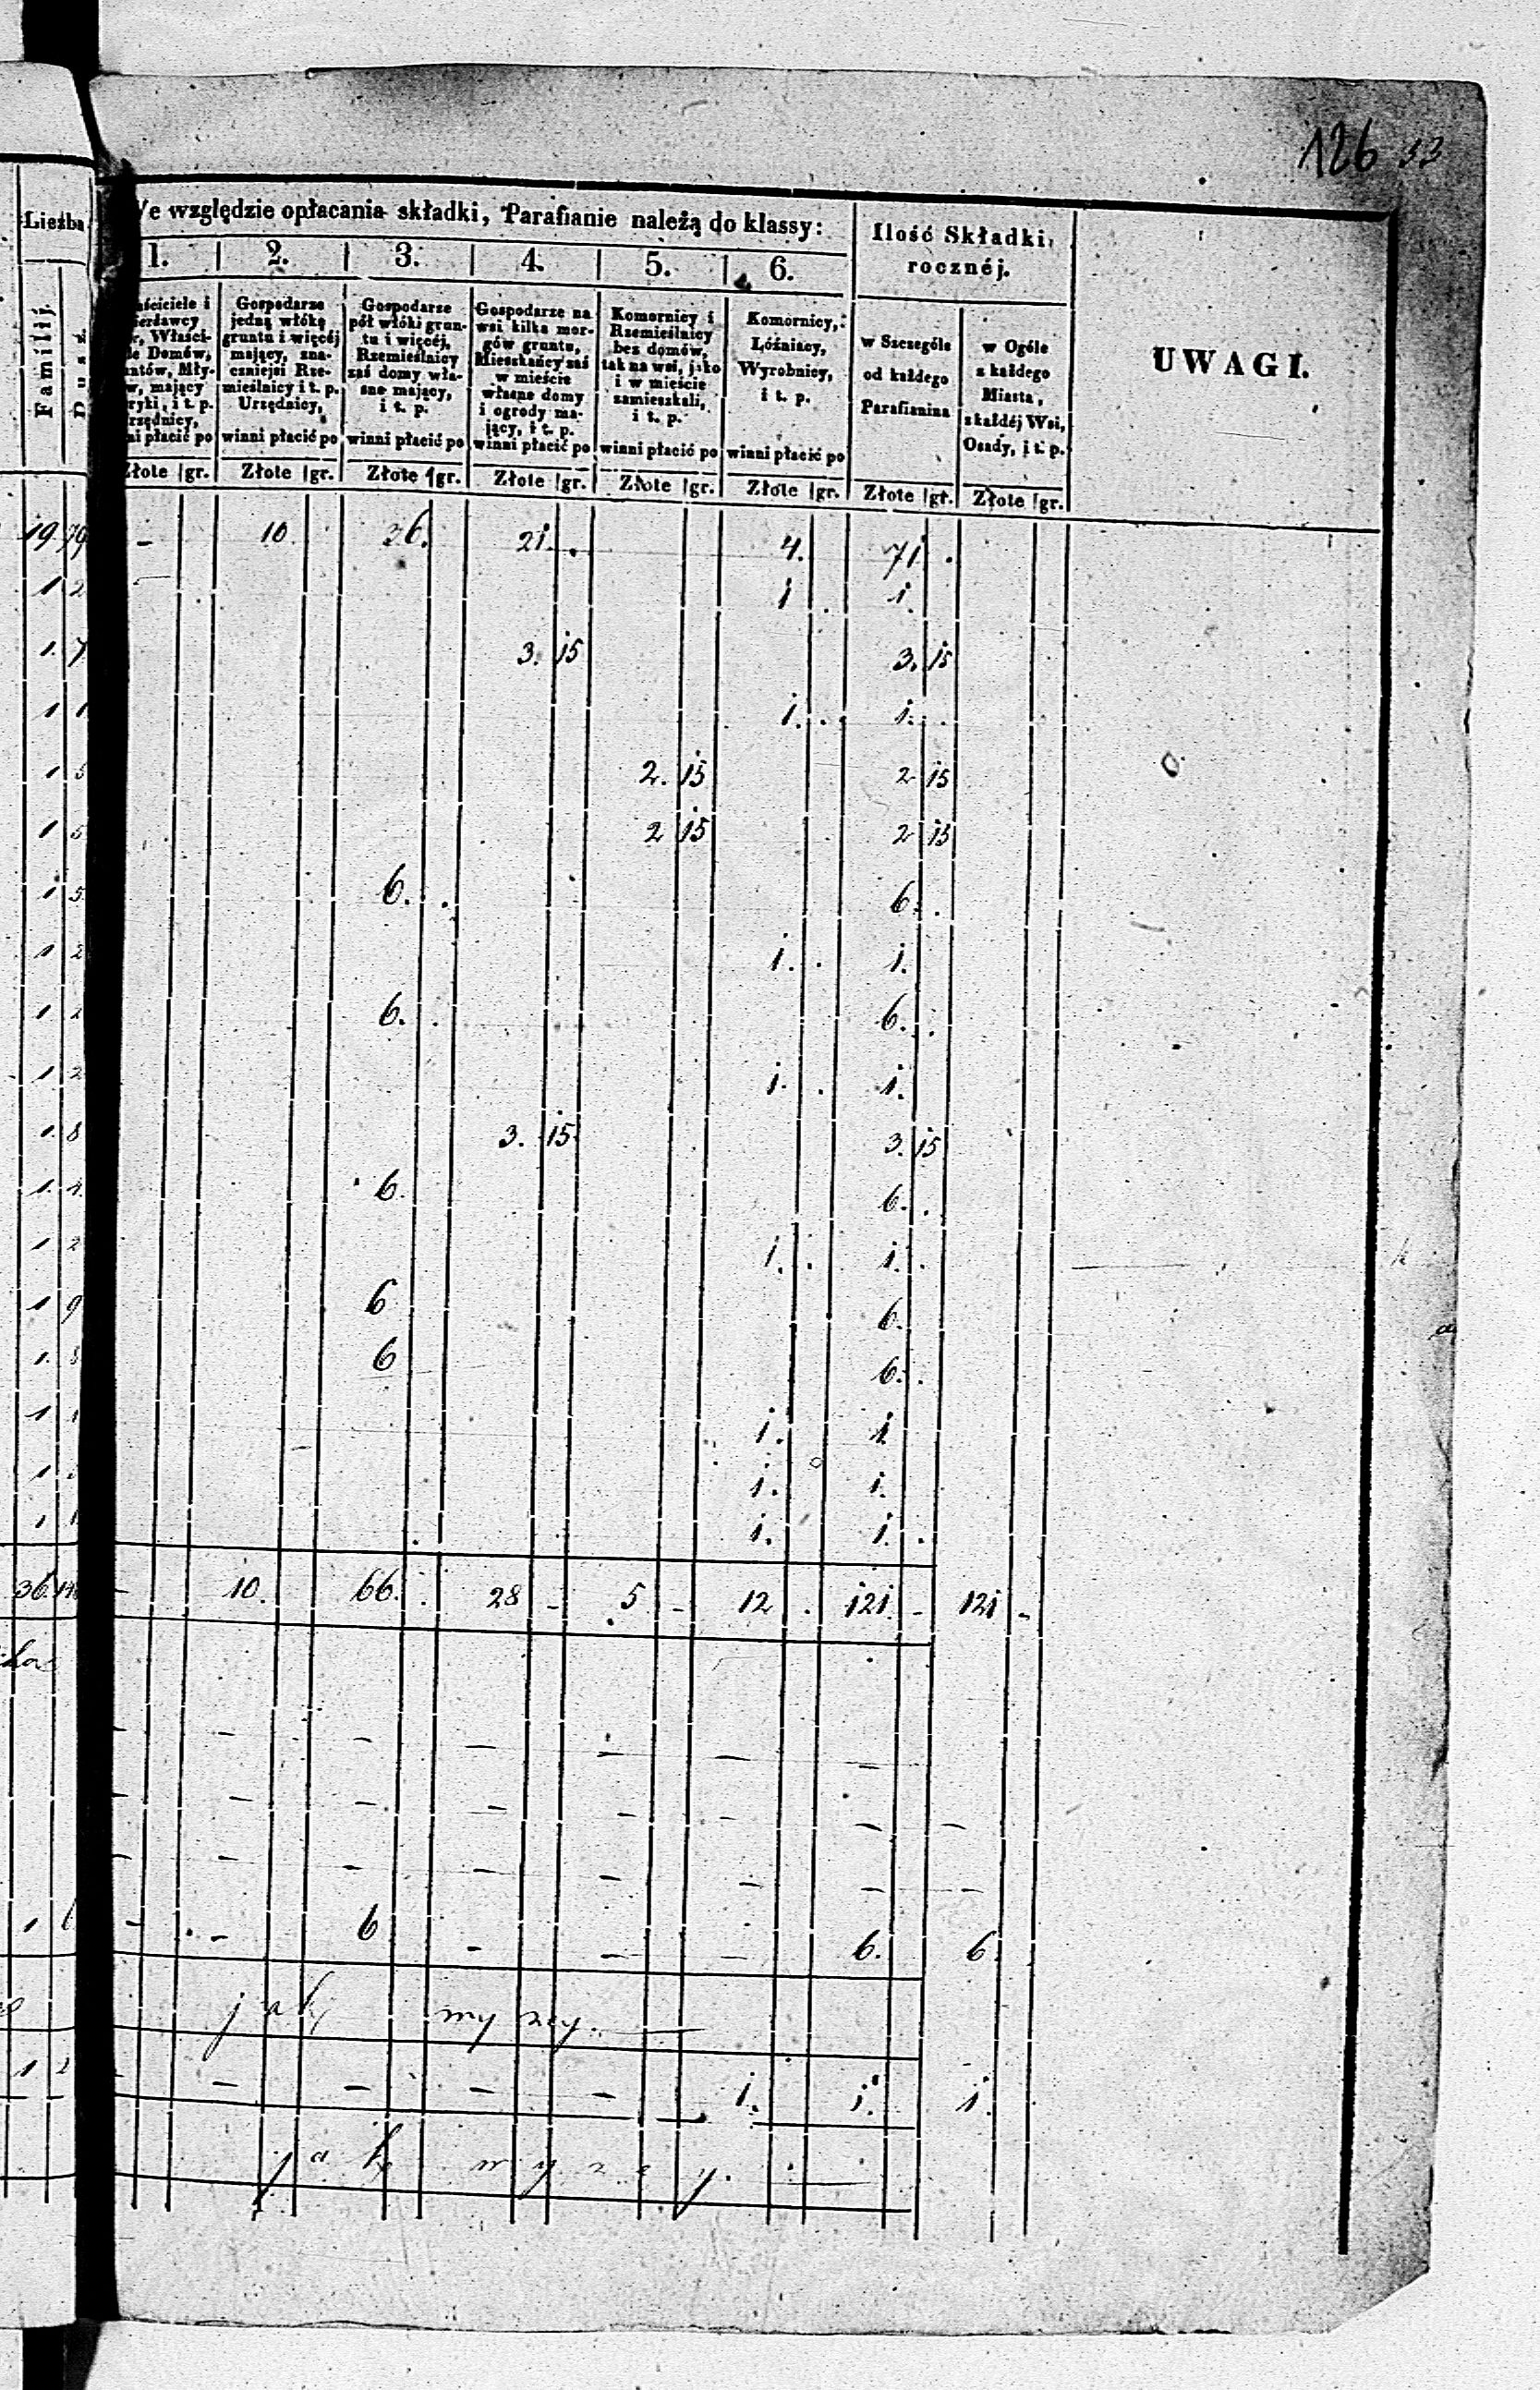 126 53
Liczba
We względzie opłacania składki, Parafianie należą do klassy:
Ilość Składki
rocznéj.
UWAGI.
1. 2. 3. 4. 5. 6.
Familij.
Dusz
ściciele i
ierżawcy
r, Właści-
le Domów,
ntów, Mły-
w, mający
ryki, i t. p.
rzędnicy,
ni płacić po
Gospodarze
jedną włókę
gruntu i więcéj
mający, zna-
czniejsi Rze-
mieślnicy i t. p.
Urzędnicy,
winni płacić po
Gospodarze
pół włóki grun-
tu i więcéj,
Rzemieślnicy
zaś domy wła-
sne mający,
i t. p.
winni płacić po
Gospodarze na
wsi kilka mor-
gów gruntu,
Mieszkańcy zaś
w mieście
własne domy
i ogrody ma-
jący, i t. p.
winni płacić po
Komornicy i
Rzemieślnicy
bez domów,
tak na wsi, jako
i w mieście
zamieszkali,
i t. p.
winni płacić po
Komornicy,
Lóźniacy,
Wyrobnicy,
i t. p.
winni płacić po
w Szczególe
od każdego
Parafianina
w Ogóle
z każdego
Miasta,
z każdéj Wsi,
Osady, i t. p.
Złote gr. Złote gr. Złote gr. Złote gr. Złote gr. Złote gr. Złote gr. Złote gr.
19 79 - 10 26. 21. 4. 71
1 2 1 1
1. 7 3. 15 3. 15
1 1 1. 1.
1 5 2. 15 2 15
1 5 2 15 2 15
1 5 6. 6.
1 2 1. 1.
1. 2 6. 6.
1. 2 1. 1.
1. 8 3. 15 3. 15
1. 6 6.
1 2 1. 1.
1 9 6 6.
1. 8 6 6.
1 1 1. 1
1 1. 1.
1 1 1. 1.
36 - 10. 66. 28 - 5 - 12 . 121 - 121 -
- - - - - - -
- - - - - - - -
- - - - - - - -
1 - - 6 - - - 6. 6
jak wyżej. —
1 2 - - - - - 1. 1. 1.
jak wyżej. —